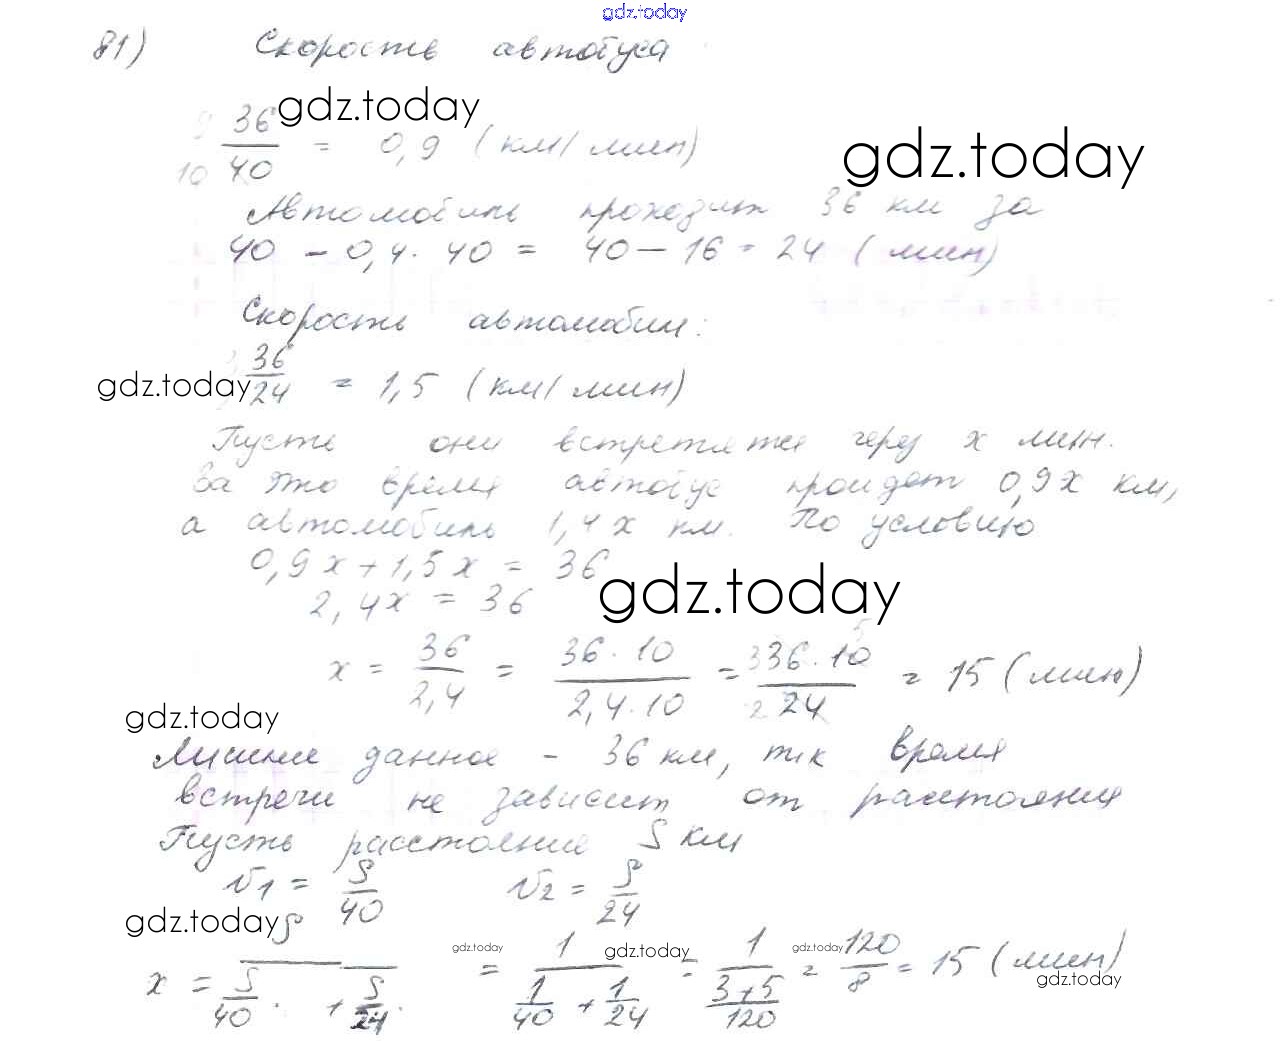 gdz.today
81) Скорость автобуса
9 36/10 40 = 0,9 (км/мин)
gdz.today
gdz.today
Автомобиль проходит 36 км за
40 - 0,4 · 40 = 40 - 16 = 24 (мин)
Скорость автомобиля:
36/24 = 1,5 (км/мин)
gdz.today
Пусть они встретятся через x мин.
За это время автобус пройдет 0,9x км,
а автомобиль 1,4x км. По условию
0,9x + 1,5x = 36
2,4x = 36
gdz.today
x = 36/2,4 = 36·10/2,4·10 = 36·10/24 = 15 (мин)
gdz.today
Лишнее данное - 36 км, т к время
встречи не зависит от расстояния
Пусть расстояние S км
v1 = S/40 v2 = S/24
gdz.today
x = S/(S/40 + S/24) = 1/(1/40 + 1/24) = 1/((3+5)/120) = 120/8 = 15 (мин)
gdz.today
gdz.today
gdz.today
gdz.today